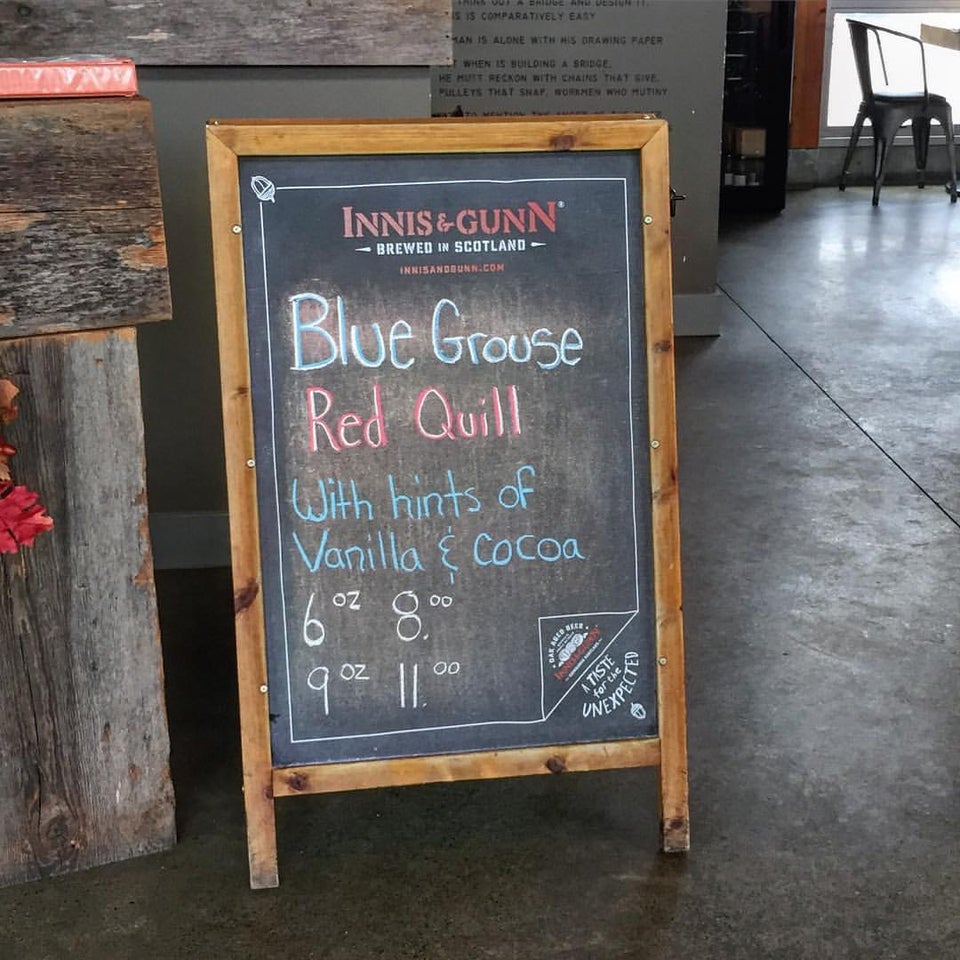 THINK OUT A BRIDGE AND DESIGN IT.
IS IS COMPARATIVELY EASY
MAN IS ALONE WITH HIS DRAWING PAPER
T WHEN IS BUILDING A BRIDGE,
HE MUTT RECKON WITH CHAINS THAT GIVE,
PULLEYS THAT SNAP, WORKMEN WHO MUTINY
TO MENTION THE
INNIS & GUNN®
BREWED IN SCOTLAND
INNISANDGUNN.COM
Blue Grouse
Red Quill
With hints of
Vanilla & cocoa
6 oz 8.00
9 oz 11.00
OAK AGED BEER
INNIS & GUNN
A TASTE
for the
UNEXPECTED